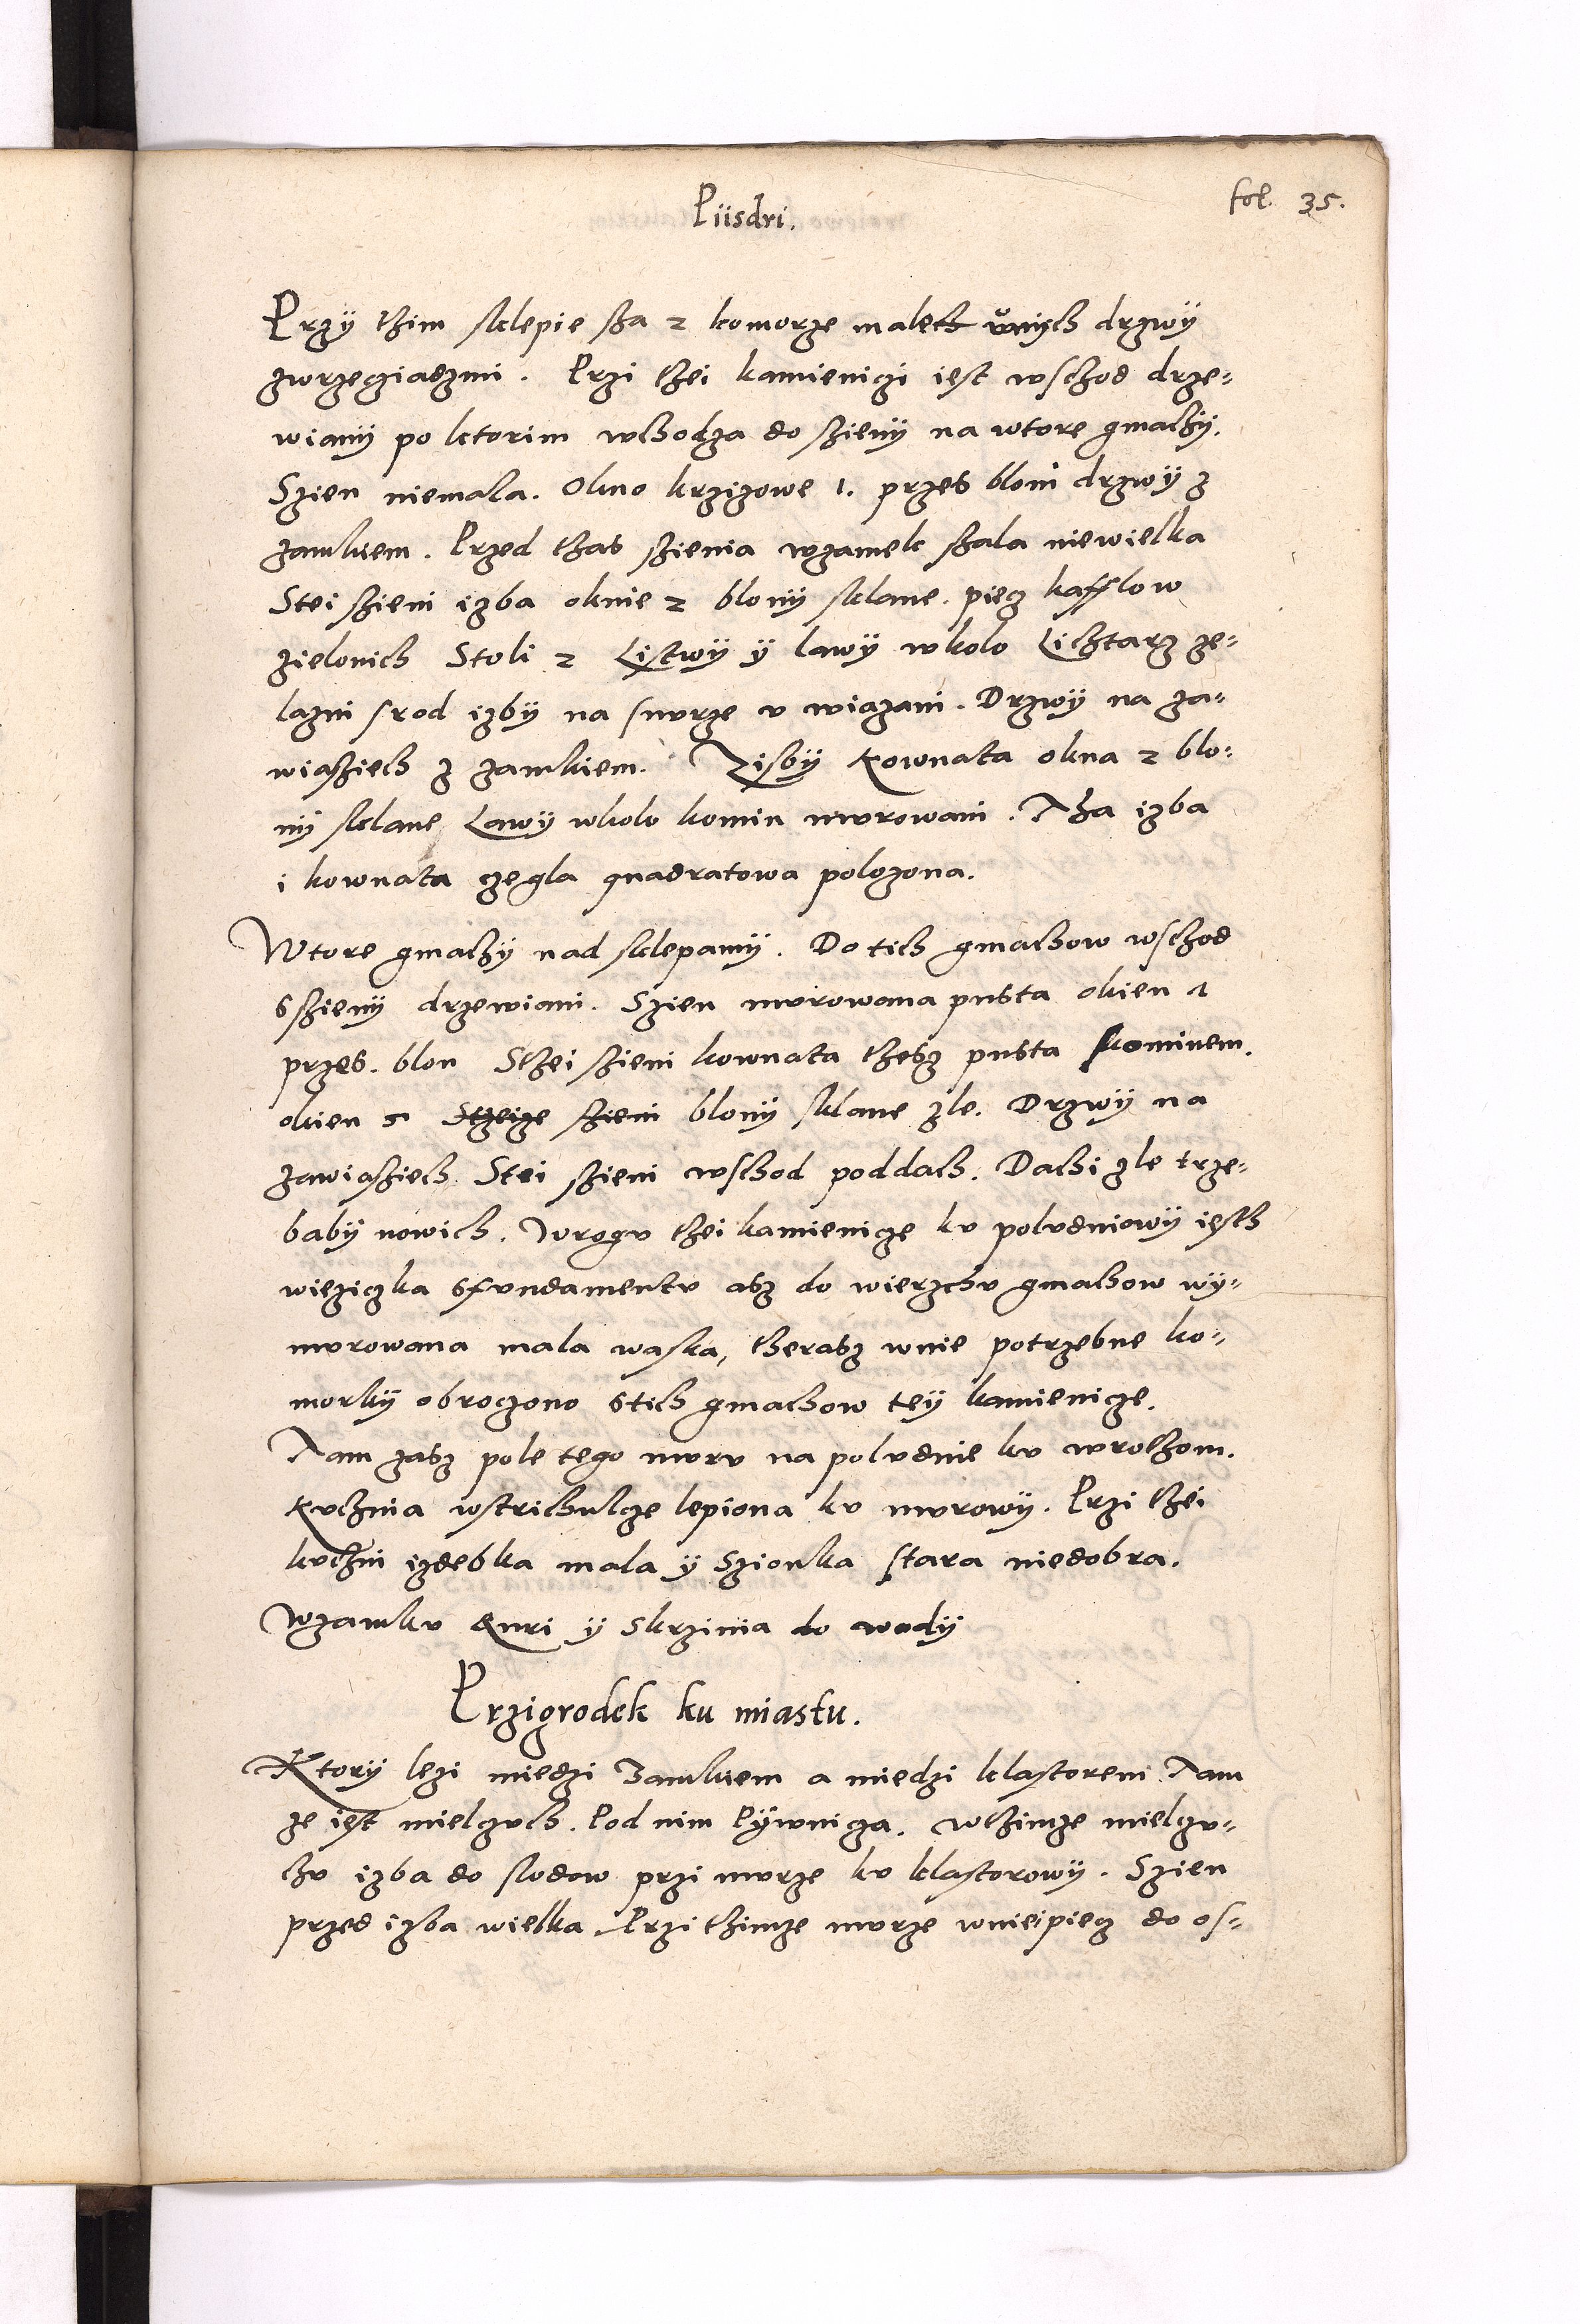 Piisdri.
fol. 35.
Przÿ thim sklepie sza 2 komorze malich wnich drzwÿ
zwrzecziadzmi. Przi thei kamieniczi iest wschod drze=
wianÿ po ktorim wchodza do szienÿ na wtore gmachÿ.
Szien niemala. Okno krzizowe 1. przes bloni drzwÿ z
zamkiem. Przed thas szienia wzamek szala niewielka
Stei szieni izba oknie 2 blonÿ sklane. piecz kafflow
zielonich Stoli 2 Listwÿ ÿ lawÿ wkolo Lichtarz ze=
lazni srod izbÿ na snvrze v wiazani. Drzwÿ na za=
wiasziech z zamkiem. Zisbÿ Kownata okna 2 blo=
nÿ sklane Lawÿ wkolo komin mvrowani. Tha izba
i kownata czegla quadratowa polozona.
Wtore gmachÿ nad sklepamÿ. Do tich gmachow wschod
sszienÿ drzewiani. Szien mvrowana pusta okien 1
przes. blon Sthei szieni kownata thesz pusta skominem.
okien 5 blonÿ sklane zle. Drzwÿ na
zawiasziech Stei szieni wschod poddach. Dachi zle trze=
babÿ nowich. Wrogv thei kamienicze kv polvdniowÿ iesth
wieziczka sfvndamentv asz do wierzchv gmachow wÿ=
mvrowana mala waska, therasz wnie potrzebne ko=
morkÿ obroczono stich gmachow teÿ kamienicze.
Tam zasz pole tego mvrv na polvdnie kv wrothom.
Kvchnia wstrichulcze lepiona kv mvrowÿ. Przi thei
kvchni izdebka mala ÿ Szionka stara niedobra.
Wzamkv Rnri ÿ Skrzinia do wodÿ
Przigrodek ku miastu.
Ktorÿ lezi miedzi Zamkiem a miedzi klastorem. Tam
ze iest mielczvch. Pod nim Pÿwnicza. Wthimze mielczv=
chv izba do slodow przi mvrze kv klastorowÿ. Szien
przed izba wielka Przi thimze mvrze wniei piecz do os=